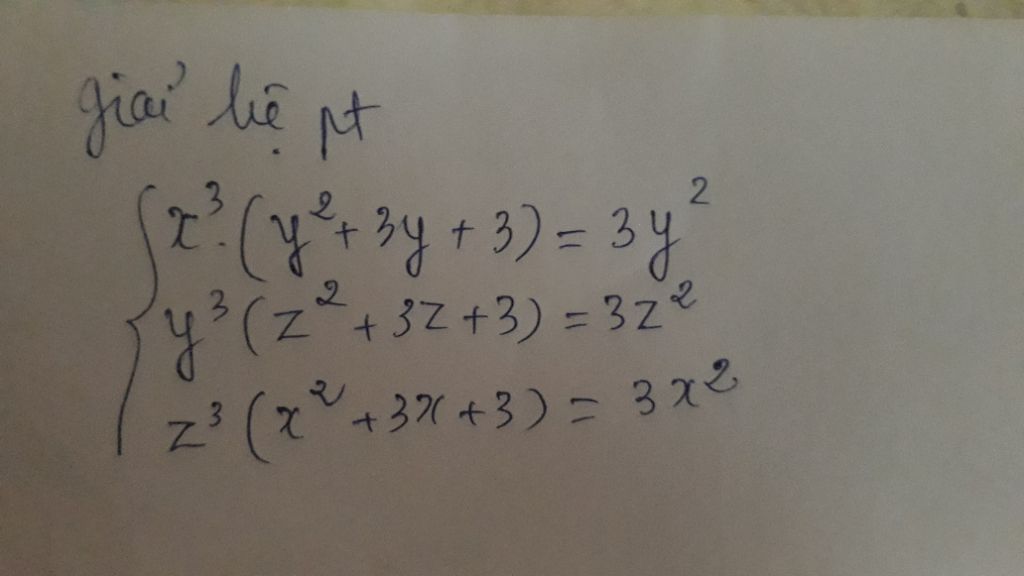 giải hệ pt
x³.(y²+3y+3)=3y²
y³(z²+3z+3)=3z²
z³(x²+3x+3)=3x²